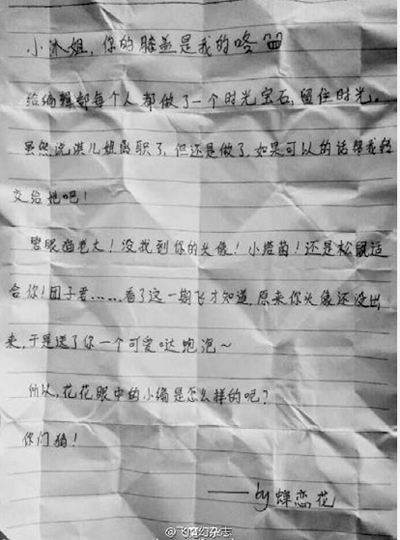 小沐姐，你的膝盖是我的咚
给编辑部每个人都做了一个时光宝石，留住时光。
虽然说淇儿姐离职了，但还是做了，如果可以的话帮我转
交给她吧！
碧眼猫老大！没找到你的头像！小塔菌！还是松鼠适
合你！团子君……看了这一期飞才知道，原来你头像还没出
来，于是送了你一个可爱哒泡泡～
所以，花花眼中的小编是怎么样的呢？
你门猜！
——by 蝉恋花
@飞魔幻杂志